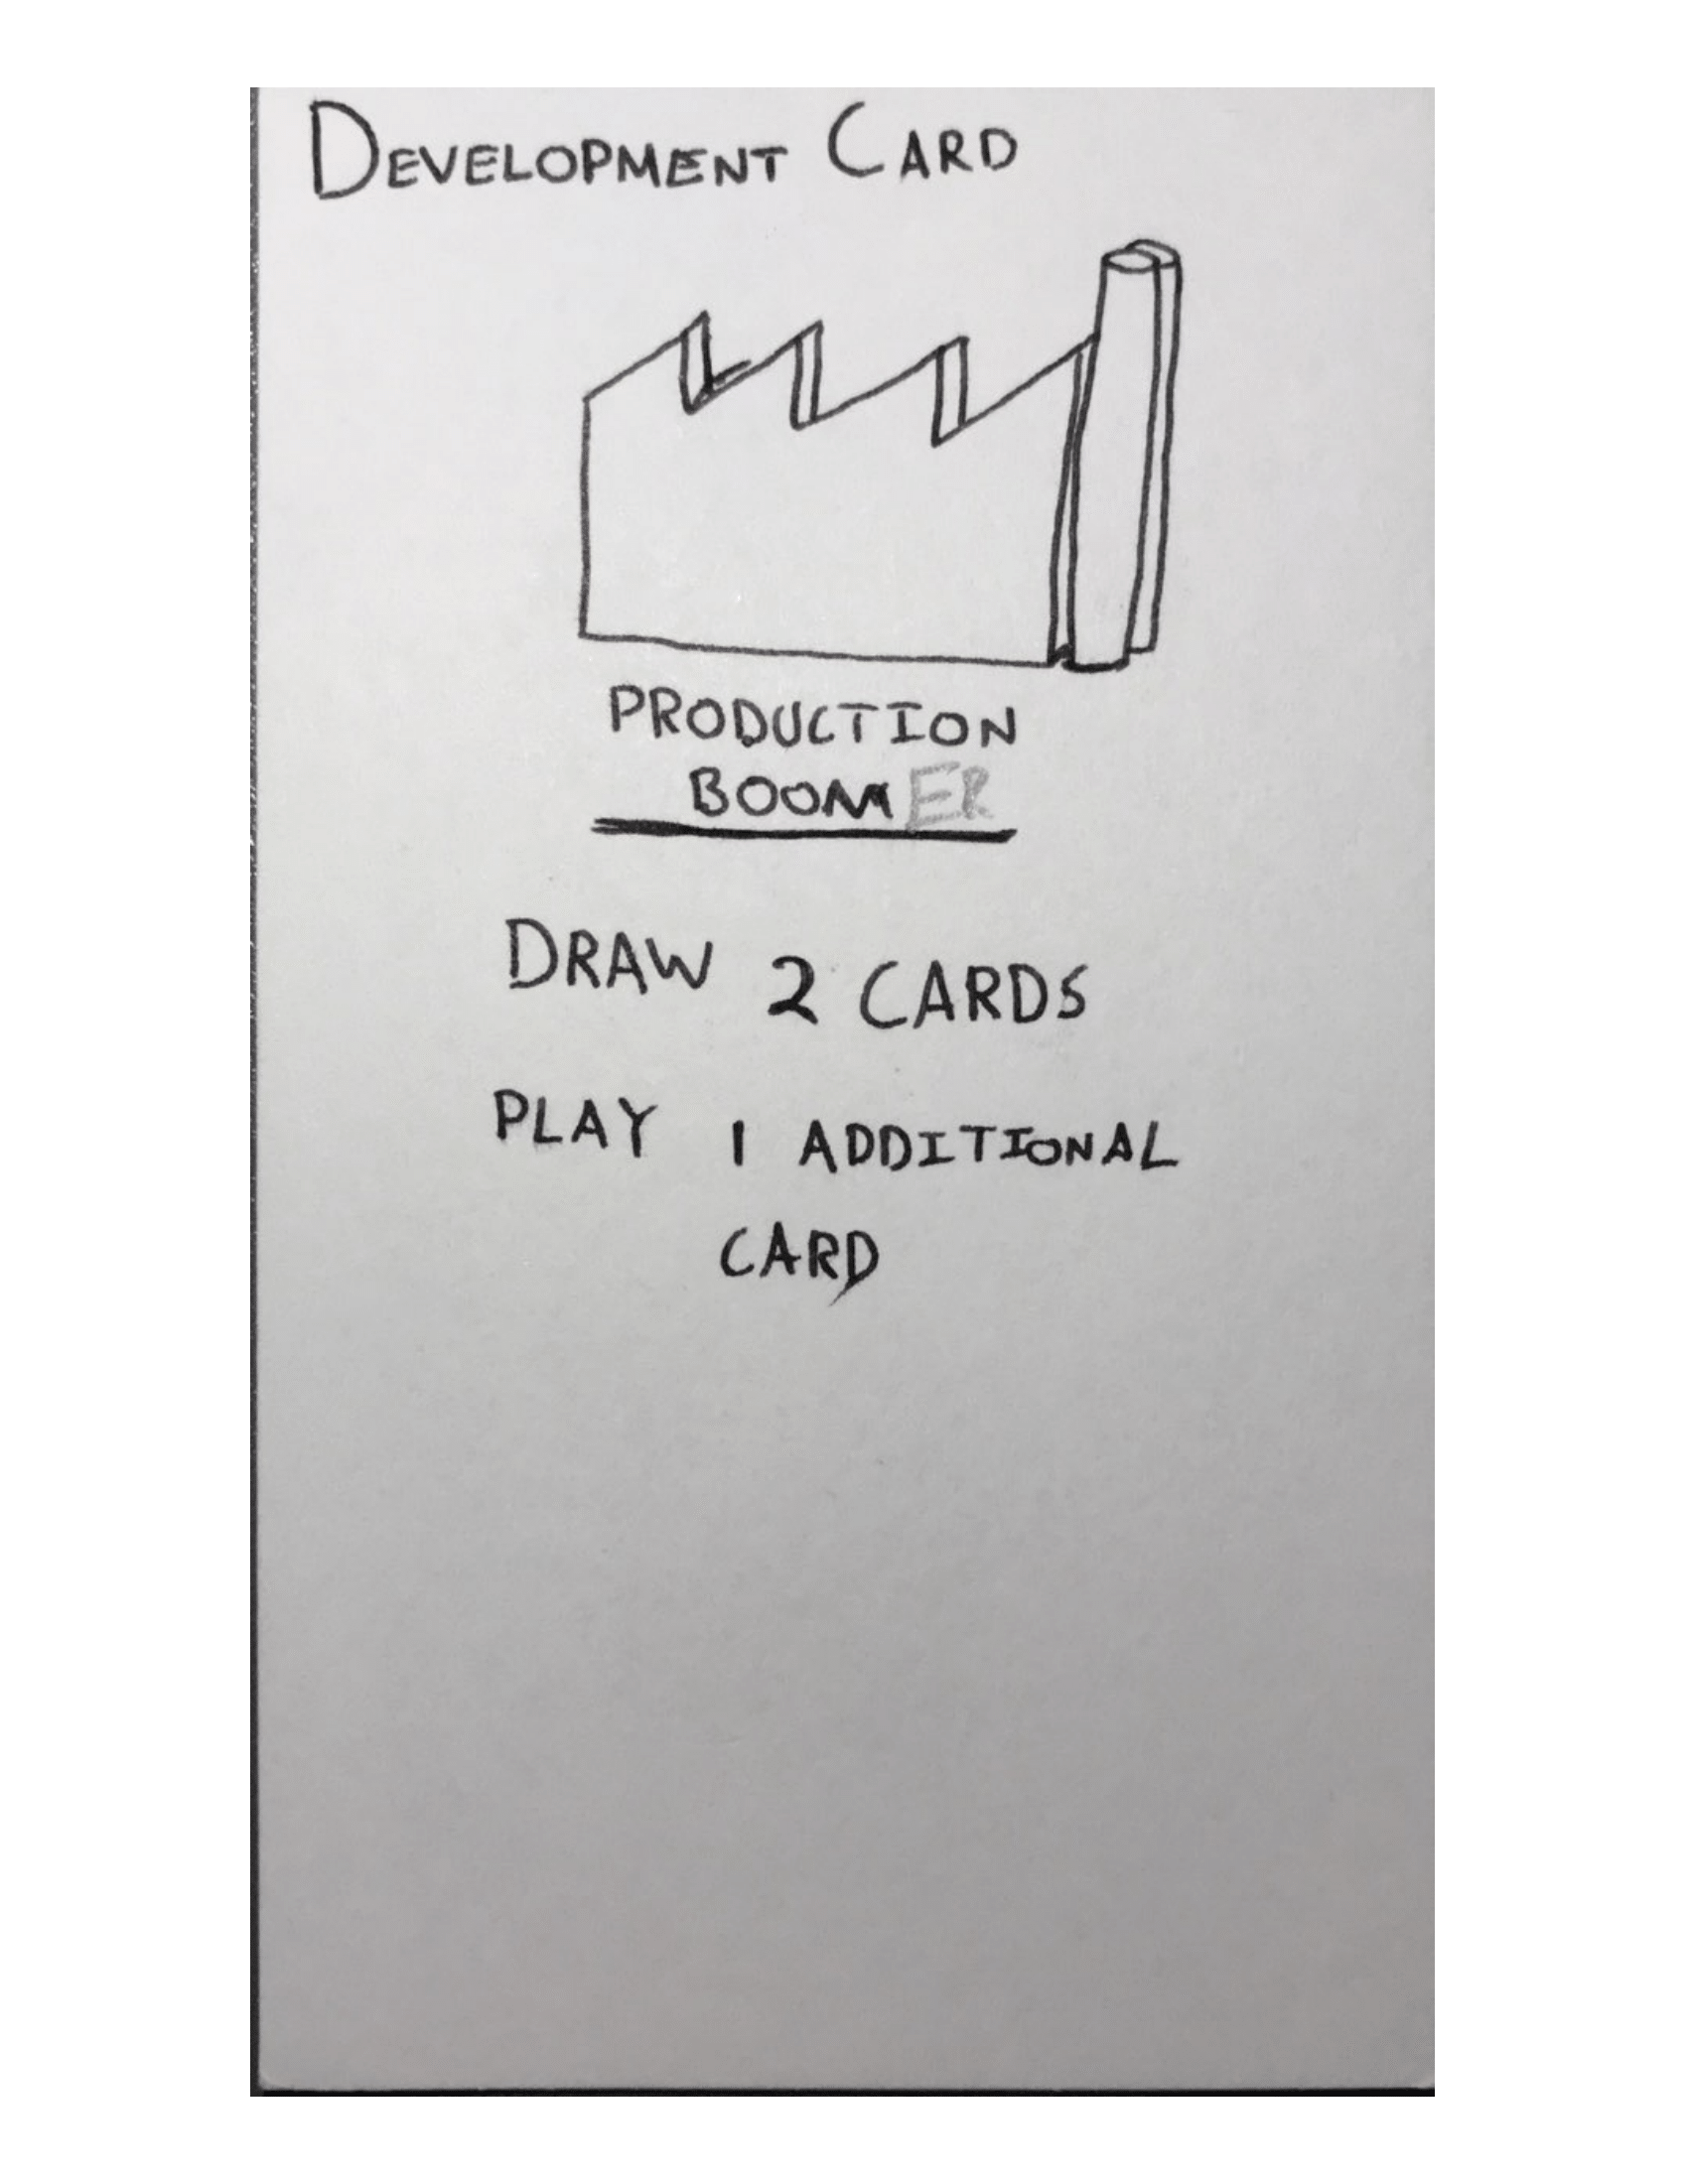 DEVELOPMENT CARD
PRODUCTION
BOOMER
DRAW 2 CARDS
PLAY 1 ADDITIONAL
CARD